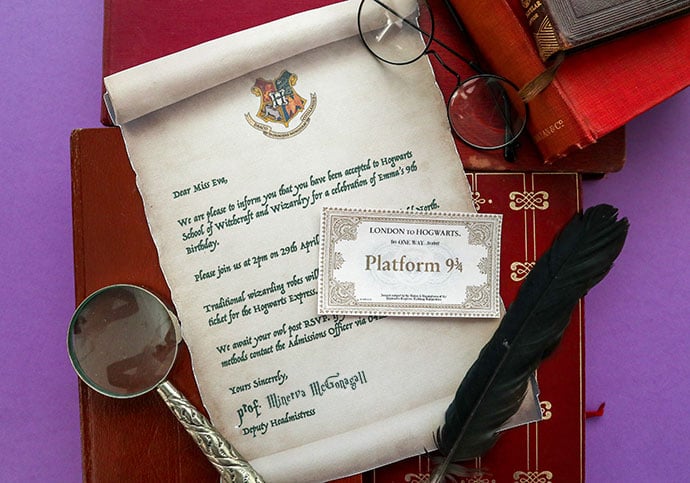 Dear Miss Eva,
We are please to inform you that you have been accepted to Hogwarts
School of Witchcraft and Wizardry for a celebration of Emma's 9th
Birthday.
Please join us at 2pm on 29th April North.
Traditional wizarding robes will
ticket for the Hogwarts Express.
We await your owl post RSVP.
methods contact the Admissions Officer via
Yours Sincerely,
prof. Minerva McGonagall
Deputy Headmistress
LONDON to HOGWARTS.
for ONE WAY travel
Platform 9¾